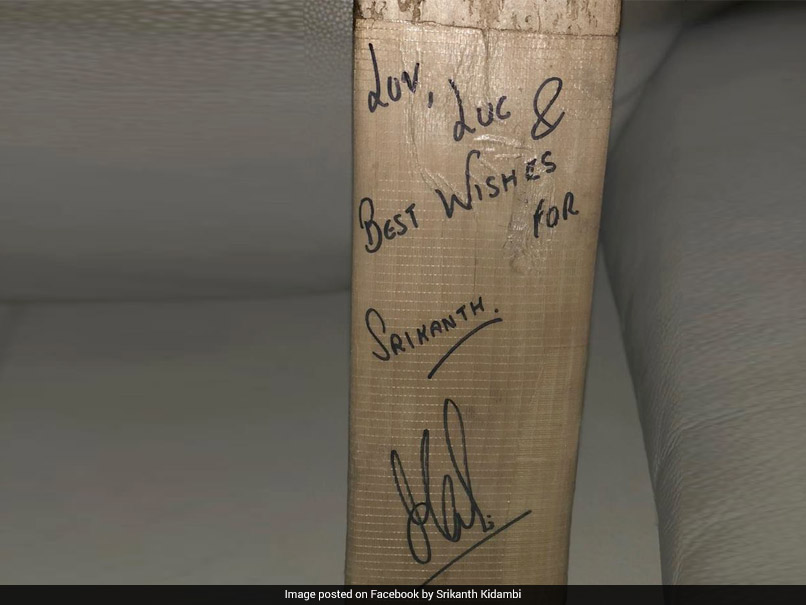 Luv, Luc &
Best Wishes
for
Srikanth.
Image posted on Facebook by Srikanth Kidambi